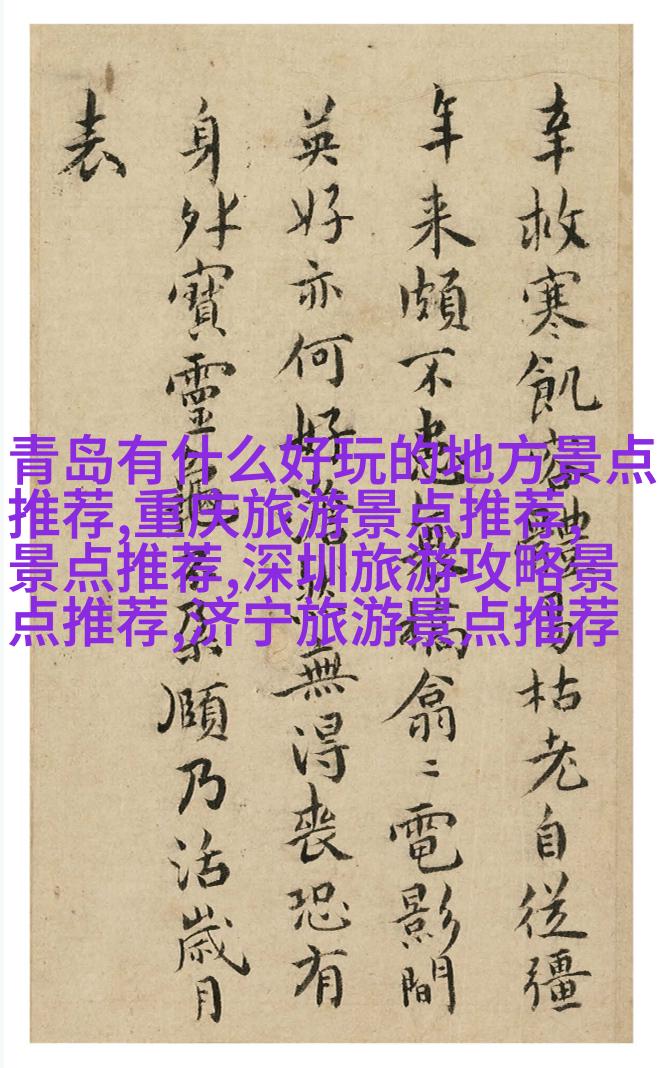 幸救寒飢體枯老自從彊
年来頗不無翕〻電影間
英好亦何好澹無得喪恐有
身外寶靈朶頤乃活歲月
表
青岛有什么好玩的地方景点
推荐,重庆旅游景点推荐,
景点推荐,深圳旅游攻略景
点推荐,济宁旅游景点推荐